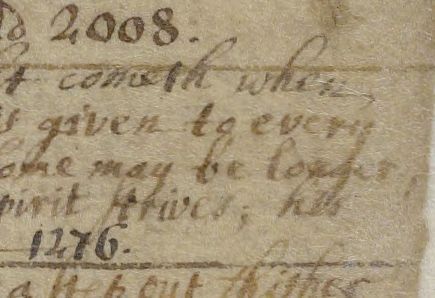 2008.
cometh when
is given to every
some may be longer,
spirit strives; his
1276.
a step out thither